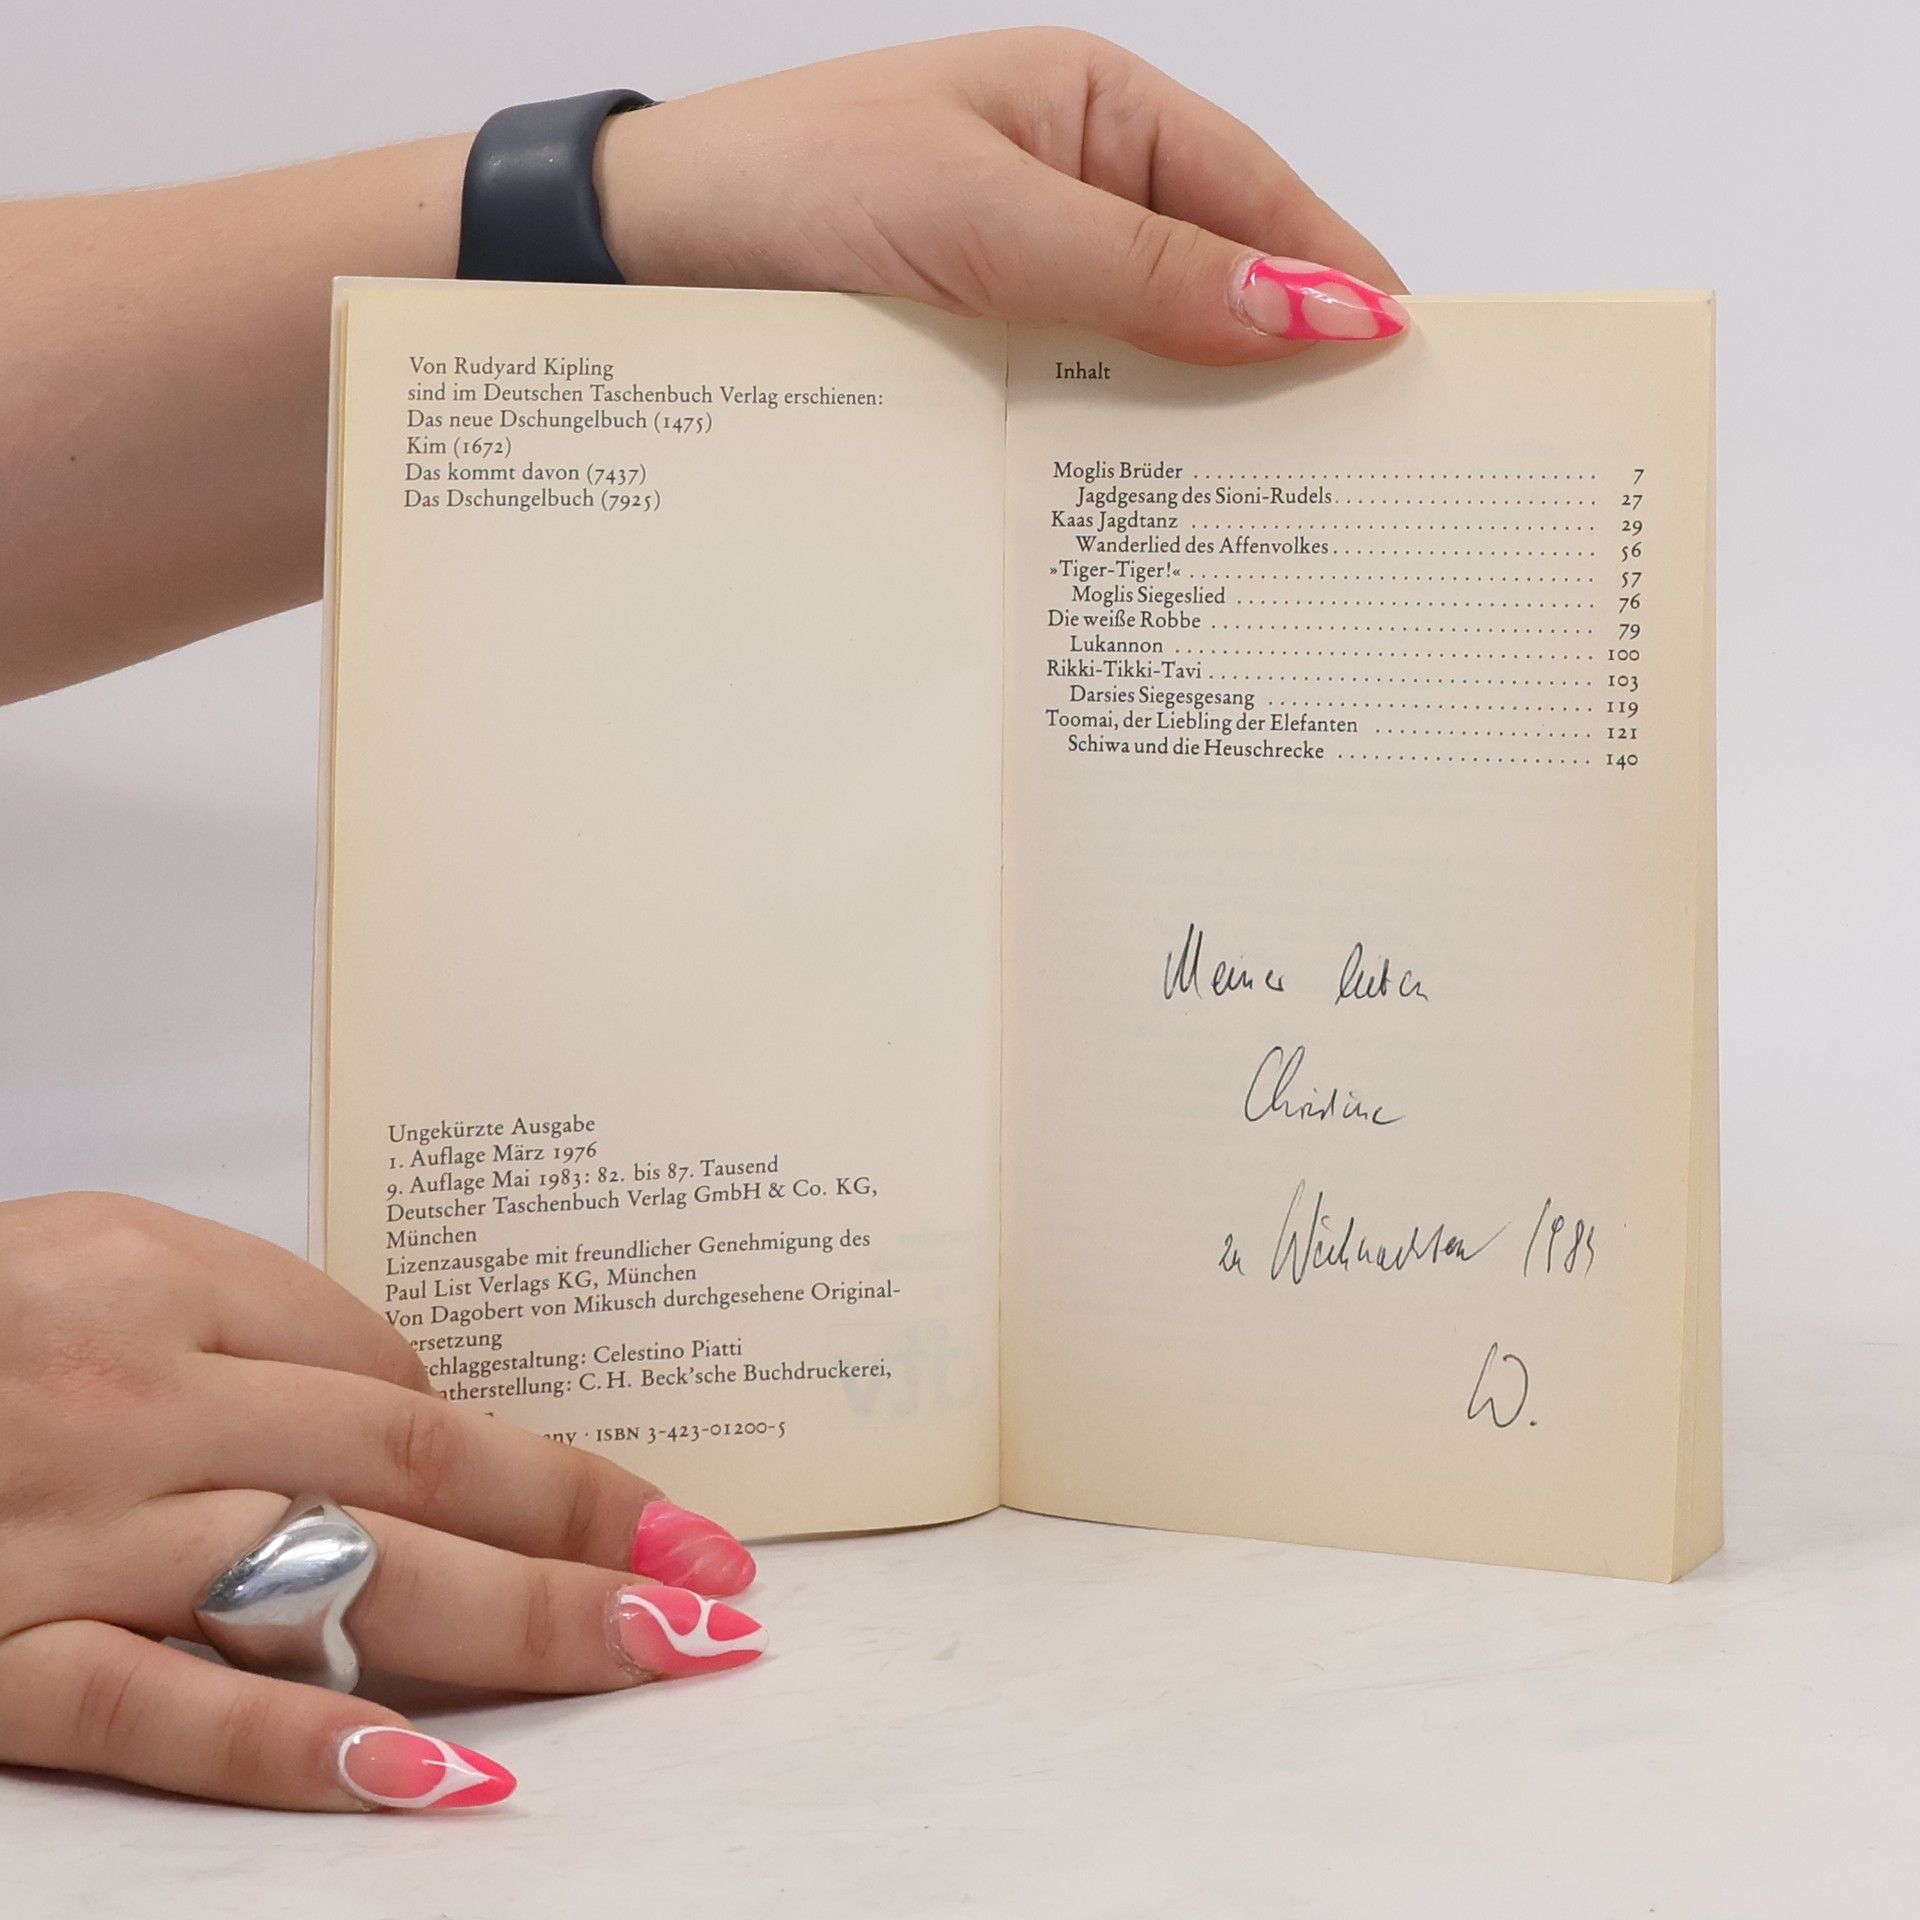 Von Rudyard Kipling
sind im Deutschen Taschenbuch Verlag erschienen:
Das neue Dschungelbuch (1475)
Kim (1672)
Das kommt davon (7437)
Das Dschungelbuch (7925)
Ungekürzte Ausgabe
1. Auflage März 1976
9. Auflage Mai 1983: 82. bis 87. Tausend
Deutscher Taschenbuch Verlag GmbH & Co. KG,
München
Lizenzausgabe mit freundlicher Genehmigung des
Paul List Verlags KG, München
Von Dagobert von Mikusch durchgesehene Original-
ersetzung
chlaggestaltung: Celestino Piatti
therstellung: C. H. Beck'sche Buchdruckerei,
any · ISBN 3-423-01200-5
Inhalt
Moglis Brüder 7
Jagdgesang des Sioni-Rudels 27
Kaas Jagdtanz 29
Wanderlied des Affenvolkes 56
»Tiger-Tiger!« 57
Moglis Siegeslied 76
Die weiße Robbe 79
Lukannon 100
Rikki-Tikki-Tavi 103
Darsies Siegesgesang 119
Toomai, der Liebling der Elefanten 121
Schiwa und die Heuschrecke 140
Meiner lieben
Christine
zu Weihnachten
W.